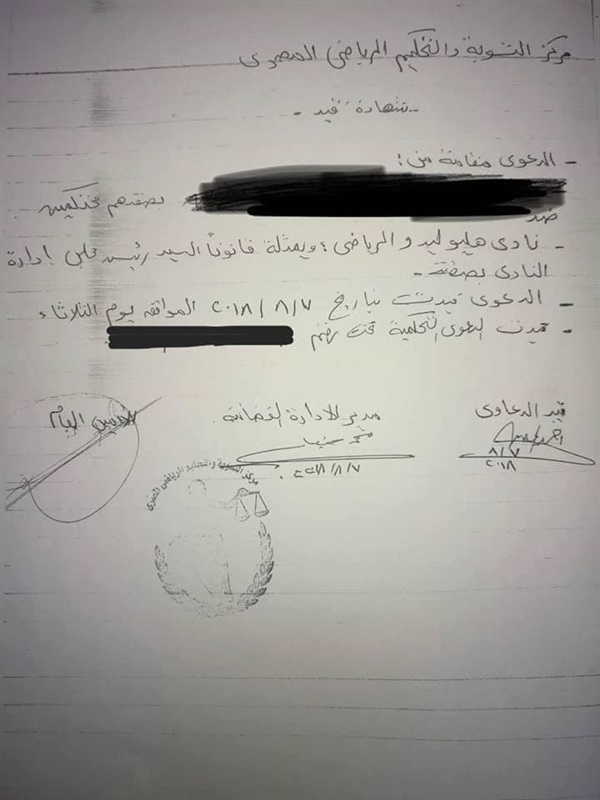 مركز التسوية والتحكيم الرياضى المصرى
- شهادة قيد -
- الدعوى مقامة من :
بصفتهم محتكمين
ضد
- نادى هليوليدو الرياضى ؛ ويمثله قانوناً السيد رئيس مجلس إدارة
النادى بصفته -
- الدعوى قيدت بتاريخ ٢٠١٨/٨/٧ الموافق يوم الثلاثاء
- قيدت الدعوى التحكمية تحت رقم
قيد الدعاوى
مدير الادارة القضائية
الامين العام
٨/٧
٢٠١٨
٢٠١٨/٨/٧
مركز التسوية والتحكيم الرياضى المصرى